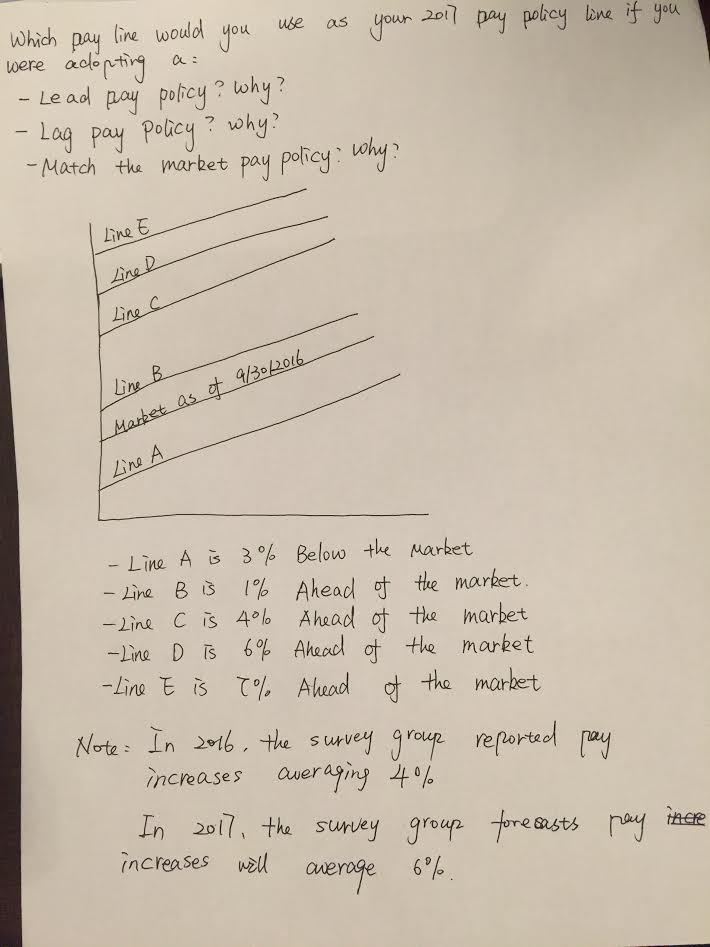 Which pay line would you use as your 2017 pay policy line if you
were adopting a:
- Lead pay policy? Why?
- Lag pay policy? why?
- Match the market pay policy: why?
Line E
Line D
Line C
Line B
Market as of 9/30/2016
Line A
- Line A is 3% Below the market
- Line B is 1% Ahead of the market.
- Line C is 4% Ahead of the market
- Line D is 6% Ahead of the market
- Line E is 7% Ahead of the market
Note: In 2016, the survey group reported pay
increases averaging 4%
In 2017, the survey group forecasts pay incre
increases will average 6%.